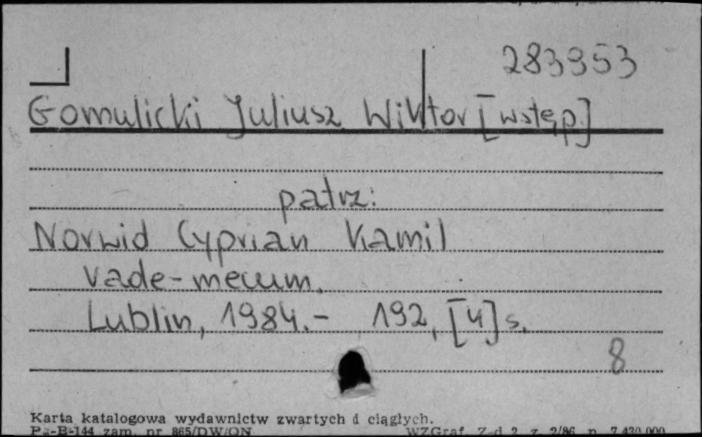 283353
Gomulicki Juliusz Wiktor [wstęp.]
patrz:
Norwid Cyprian Kamil
Vade-mecum.
Lublin, 1984.- 192, [4] s.
8
Karta katalogowa wydawnictw zwartych i ciągłych.
Pu-B-144 zam. nr 865/DW/ON WZGraf. Z-d 2 z. 2/86 n. 7.420.000